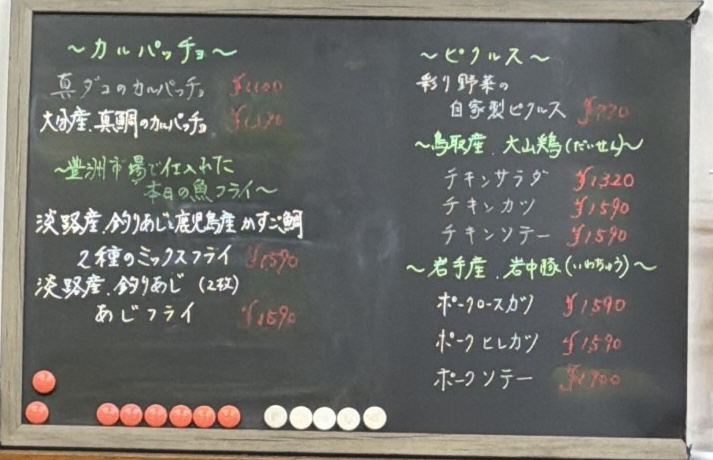 ～カルパッチョ～
真ダコのカルパッチョ ¥1,100
大分産、真鯛のカルパッチョ
～豊洲市場で仕入れた
本日の魚フライ～
淡路産、釣りあじと鹿児島産かすご鯛
2種のミックスフライ ¥1,590
淡路産、釣りあじ(2枚)
あじフライ ¥1,590
～ピクルス～
彩り野菜の
自家製ピクルス
～鳥取産、大山鶏(だいせん)～
チキンサラダ ¥1320
チキンカツ ¥1590
チキンソテー ¥1,590
～岩手産、岩中豚(いわちゅう)～
ポークロースカツ ¥1590
ポークヒレカツ ¥1,590
ポークソテー ¥1,900